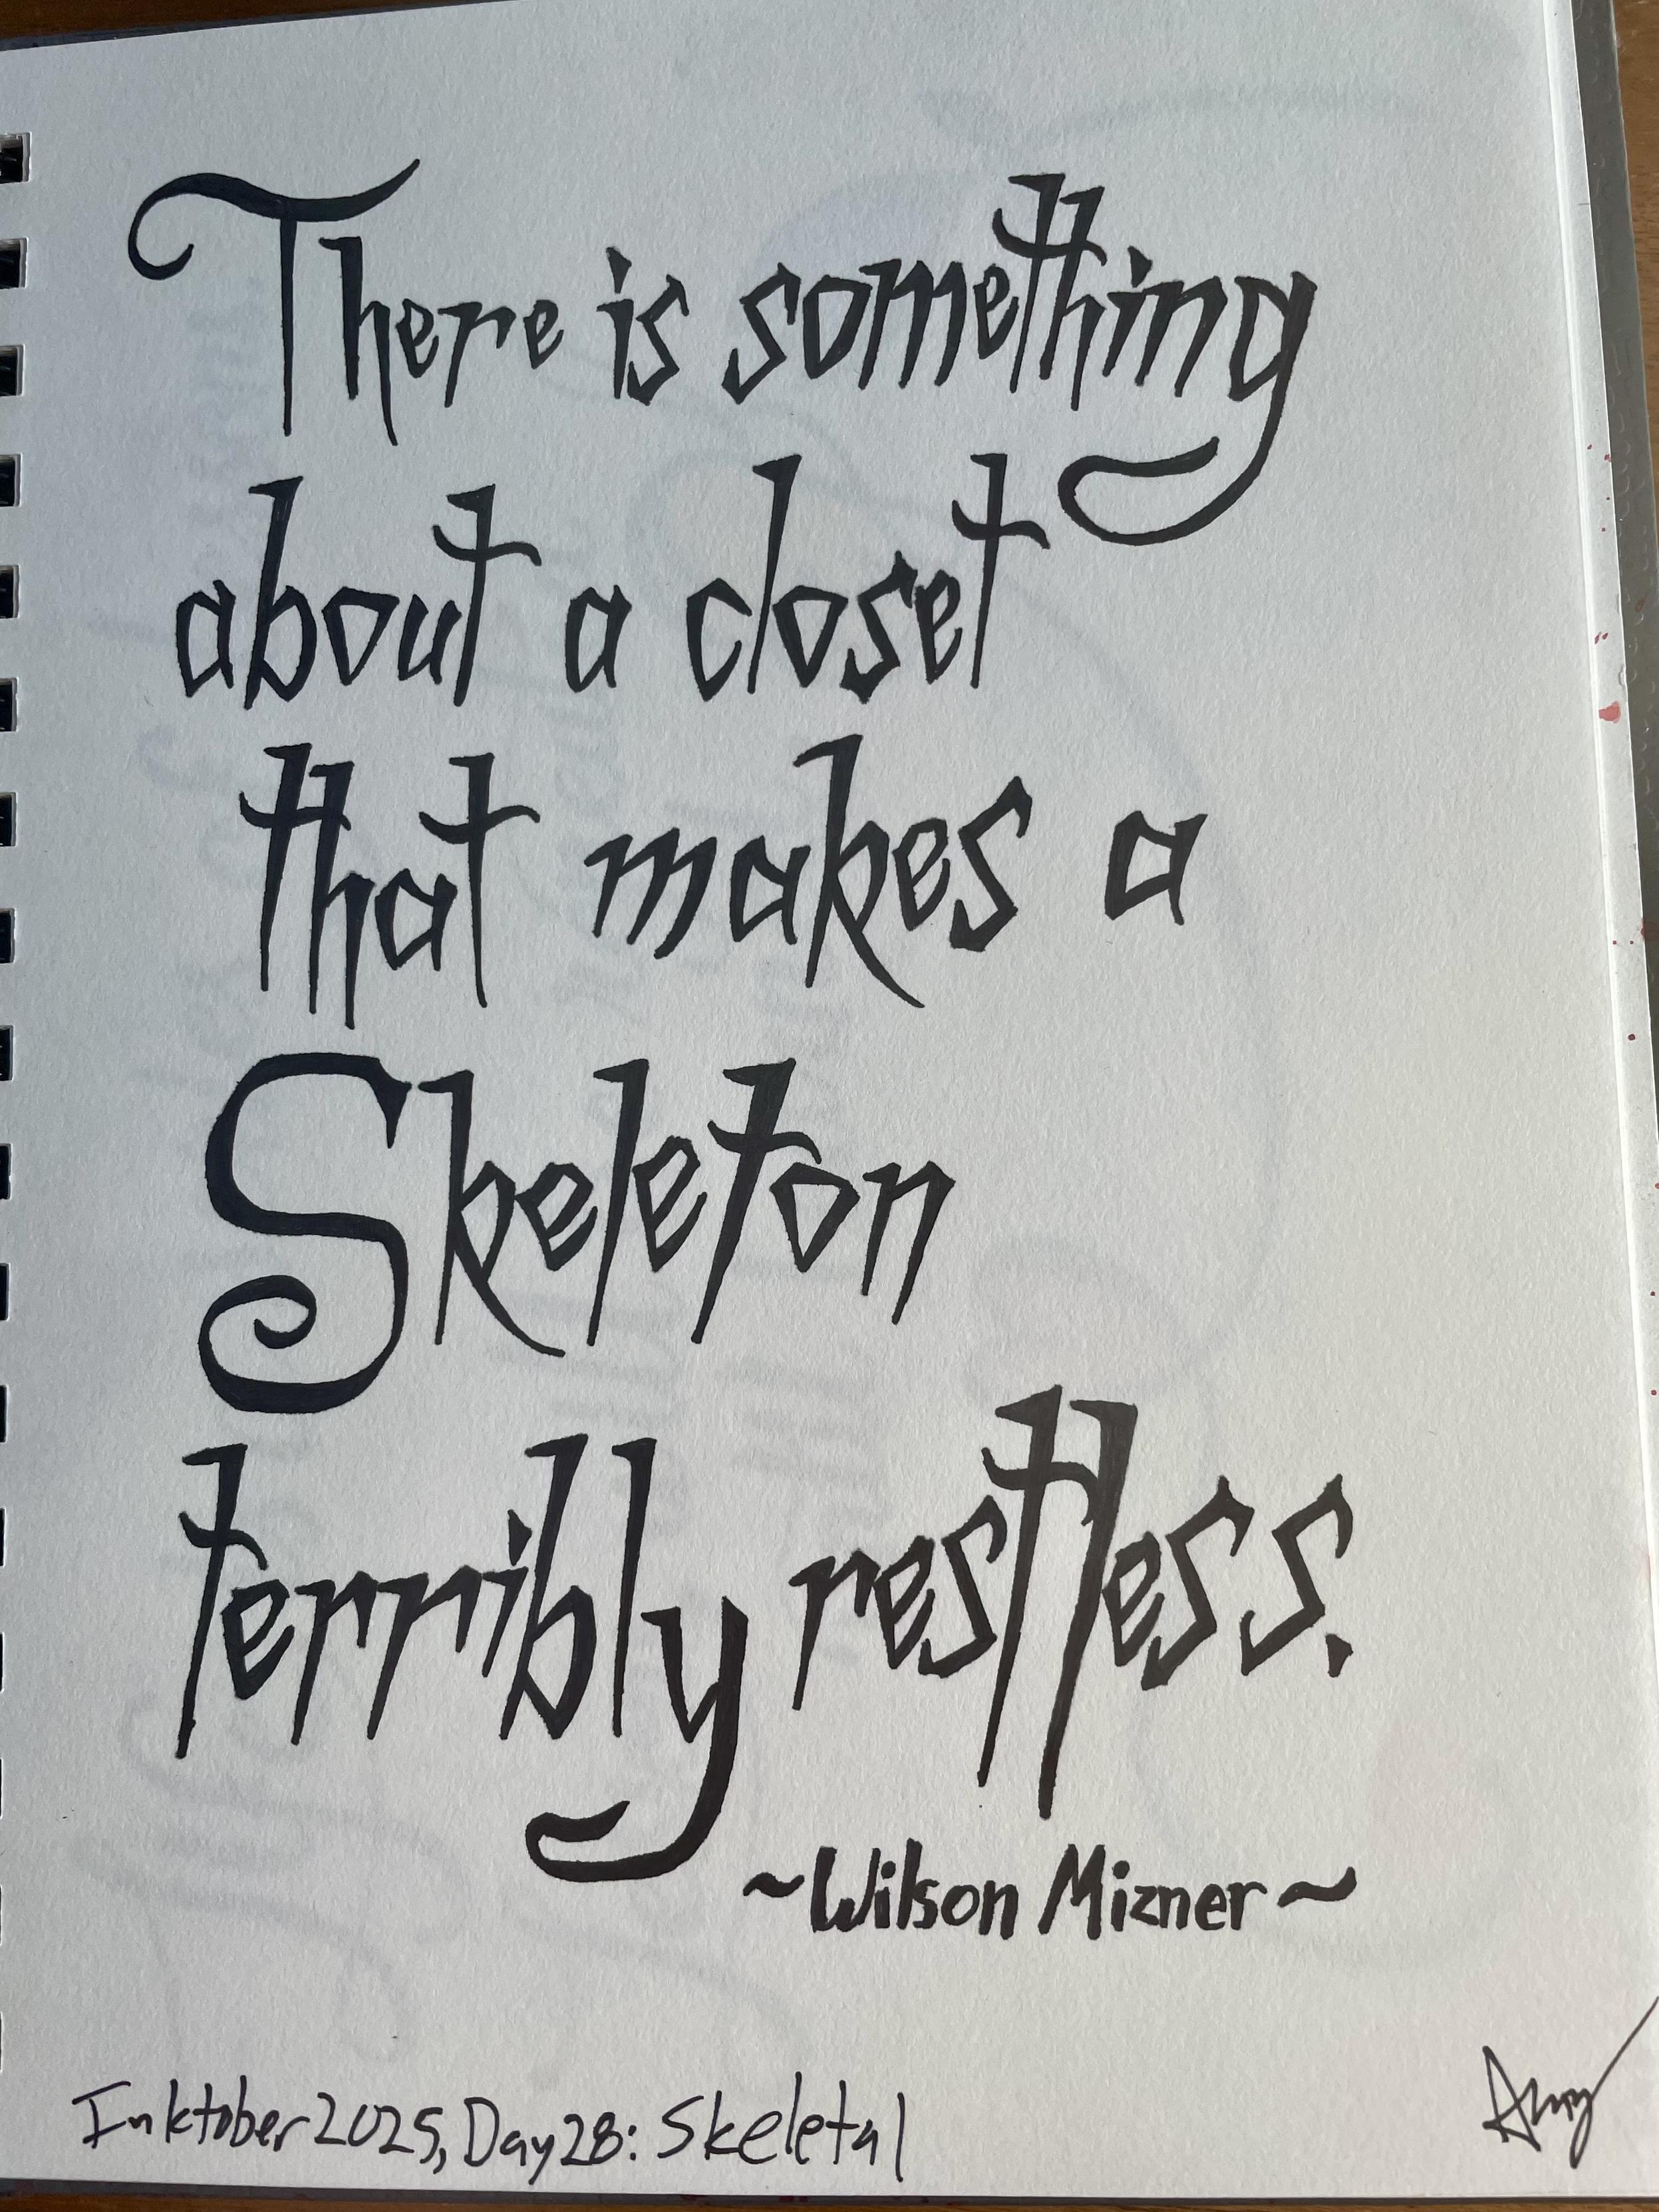 There is something
about a closet
that makes a
Skeleton
terribly restless.
~Wilson Mizner~
Inktober 2025, Day 28: Skeletal